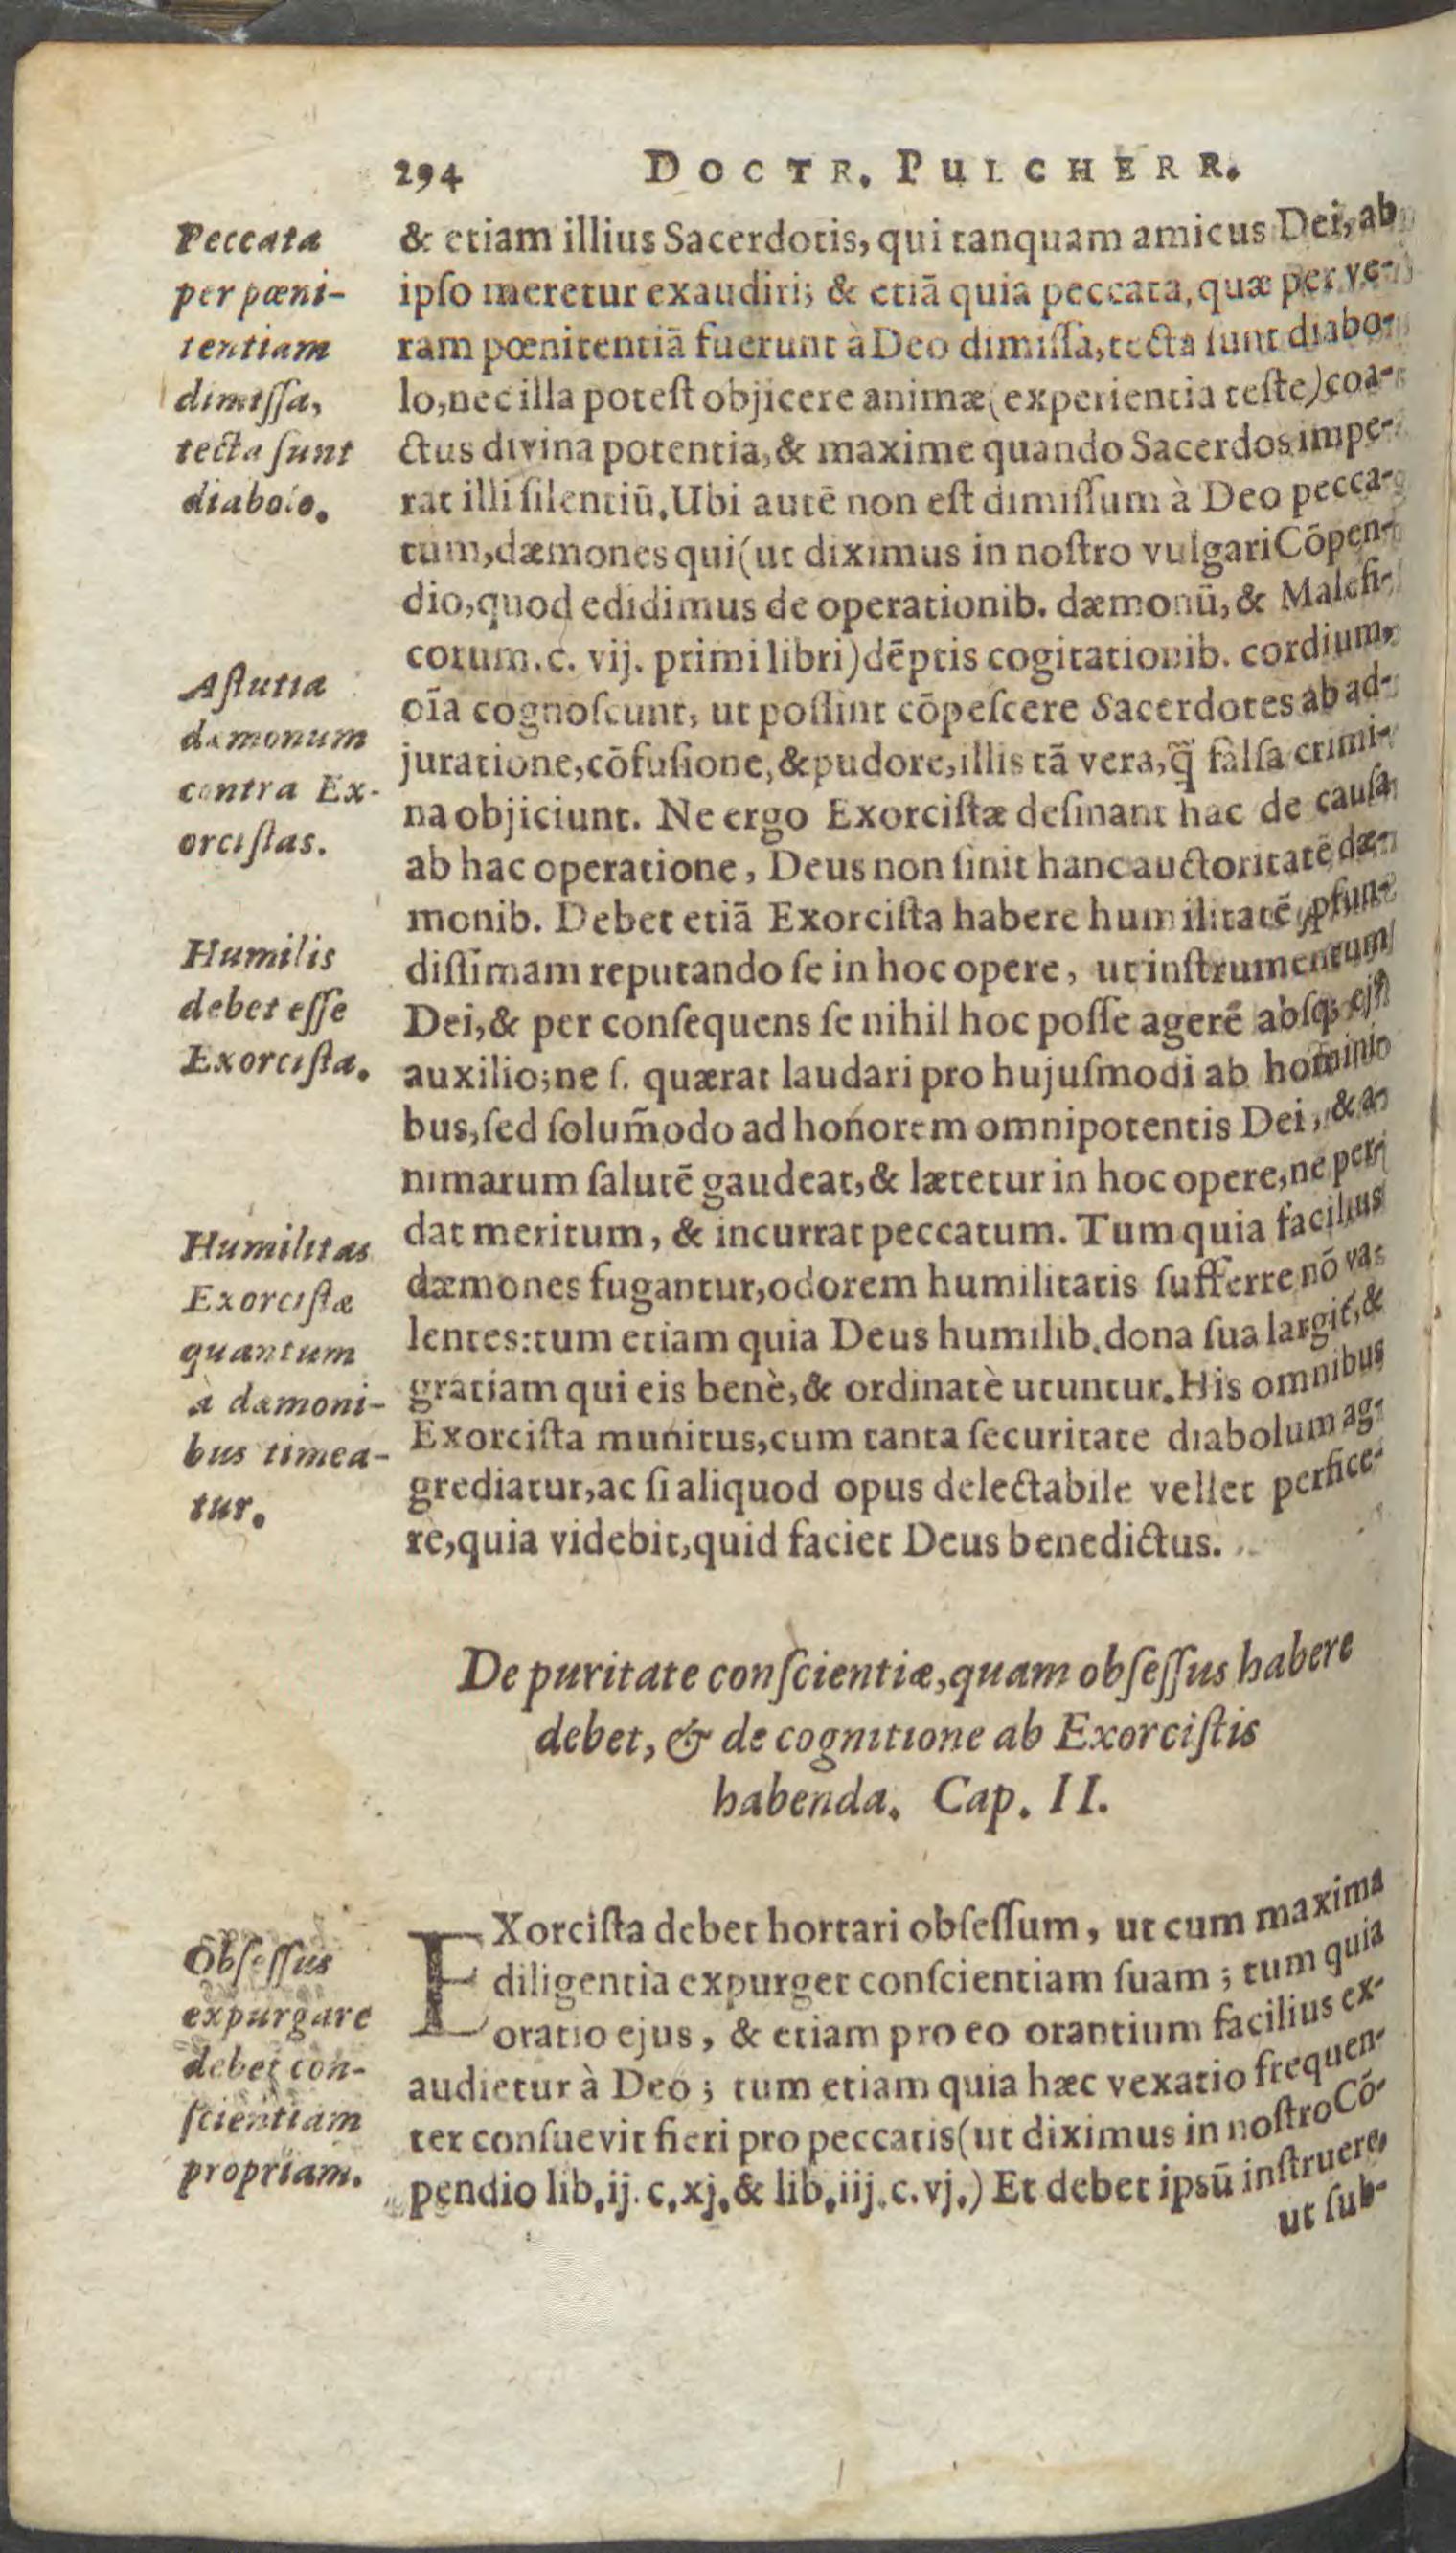 294 DOCTR. PULCHERR.
Peccata
per pœni-
tentiam
dimiſſa,
tecta ſunt
diabolo.
& etiam illius Sacerdotis, qui tanquam amicus Dei, ab
ipſo meretur exaudiri; & etiā quia peccata, quæ per ve-
ram pœnitentiā fuerunt à Deo dimiſſa, tecta ſunt diabo-
lo, nec illa poteſt objicere animæ (experientia teſte) coa-
ctus divina potentia, & maxime quando Sacerdos impe-
rat illi ſilentiū. Ubi autē non eſt dimiſſum à Deo pecca-
tum, dæmones qui (ut diximus in noſtro vulgari Cōpen-
dio, quod edidimus de operationib. dæmonū, & Malefi-
corum. c. vij. primi libri) dēptis cogitationib. cordium,
Aſtutia
dæmonum
contra Ex-
orciſtas.
oīa cognoſcunt, ut poſſint cōpeſcere Sacerdotes ab ad-
juratione, cōfuſione, & pudore, illis tā vera, q̃ falſa crimi-
na objiciunt. Ne ergo Exorciſtæ deſinant hac de cauſa
ab hac operatione, Deus non ſinit hanc auctoritatē dæ-
monib. Debet etiā Exorciſta habere humilitatē ꝓfun-
Humilis
debet eſſe
Exorciſta.
diſſimam reputando ſe in hoc opere, ut inſtrumentum
Dei, & per conſequens ſe nihil hoc poſſe agerē abſq; ejꝰ
auxilio; ne ſ. quærat laudari pro hujuſmodi ab homini
bus, ſed ſolum̃odo ad honorem omnipotentis Dei, & a-
nimarum ſalutē gaudeat, & lætetur in hoc opere, ne per-
dat meritum, & incurrat peccatum. Tum quia facilius
Humilitas
Exorciſtæ
quantum
à dæmoni-
bus timea-
tur.
dæmones fugantur, odorem humilitatis ſufferre nō va-
lentes: tum etiam quia Deus humilib. dona ſua largit, &
gratiam qui eis benè, & ordinatè utuntur. His omnibus
Exorciſta munitus, cum tanta ſecuritate diabolum ag-
grediatur, ac ſi aliquod opus delectabile vellet perfice-
re, quia videbit, quid faciet Deus benedictus.
De puritate conſcientiæ, quam obſeſſus habere
debet, & de cognitione ab Exorciſtis
habenda. Cap. II.
Obſeſſus
expurgare
debet con-
ſcientiam
propriam.
EXorciſta debet hortari obſeſſum, ut cum maxima
diligentia expurget conſcientiam ſuam; tum quia
oratio ejus, & etiam pro eo orantium facilius ex-
audietur à Deo; tum etiam quia hæc vexatio frequen-
ter conſuevit fieri pro peccatis (ut diximus in noſtro Cō-
pendio lib. ij. c. xj. & lib. iij. c. vj.) Et debet ipsū inſtruere,
ut ſub-